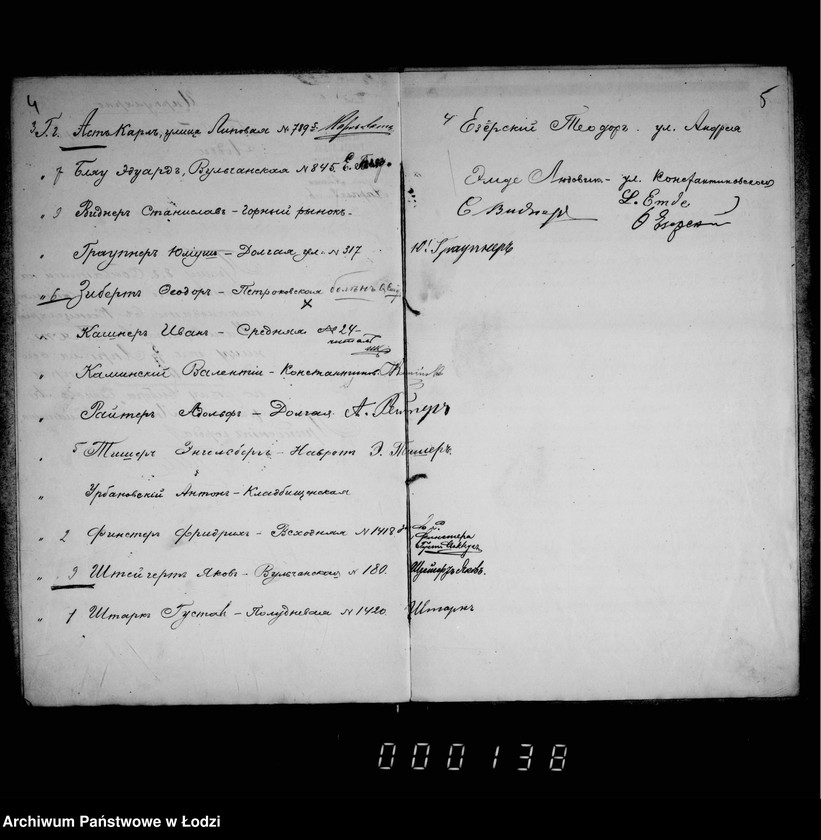 4
3 Г. г. Астъ Карлъ, улица Липовая № 789
„ 7 Блау Эдуардъ, Вульчанская № 845.
„ 9 Виднеръ Станиславъ – Горный рынокъ.
„ Граупнеръ Юліушъ – Долгая ул. № 317
„ 6 Зибертъ Теодоръ – Петроковская
„ Кашнеръ Иванъ – Средняя № 24
„ Каминскій Валентій – Константин.
„ Райтеръ Адольфъ – Долгая А. Рейтеръ
„ 5 Тишеръ Энгельбертъ – Навротъ Э. Тишеръ.
„ Урбановскій Антонъ – Кладбищенская
„ 2 Финстеръ Фридрихъ – Всходняя № 1418
„ 3 Штейгертъ Яковъ – Вульчанская № 180.
„ 1 Штаркъ Густавъ – Полудневая № 1420.
5
4 Езёрскій Теодоръ. ул. Андрея
Этде Людвикъ – ул. Константиновская
С. Виднеръ
L. Етде
Ѳ Езерскій
10! Граупнеръ
Финстера
Яковъ.
Штаркъ
000138
Archiwum Państwowe w Łodzi